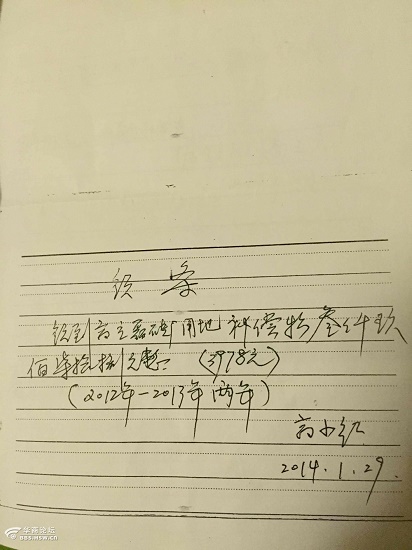 领条
领到高砖厂用地补偿叁仟玖
佰柒拾捌元整 (3978元)
(2012年-2013年两年)
高小红
2014.1.29.
华商论坛
bbs.hsw.cn